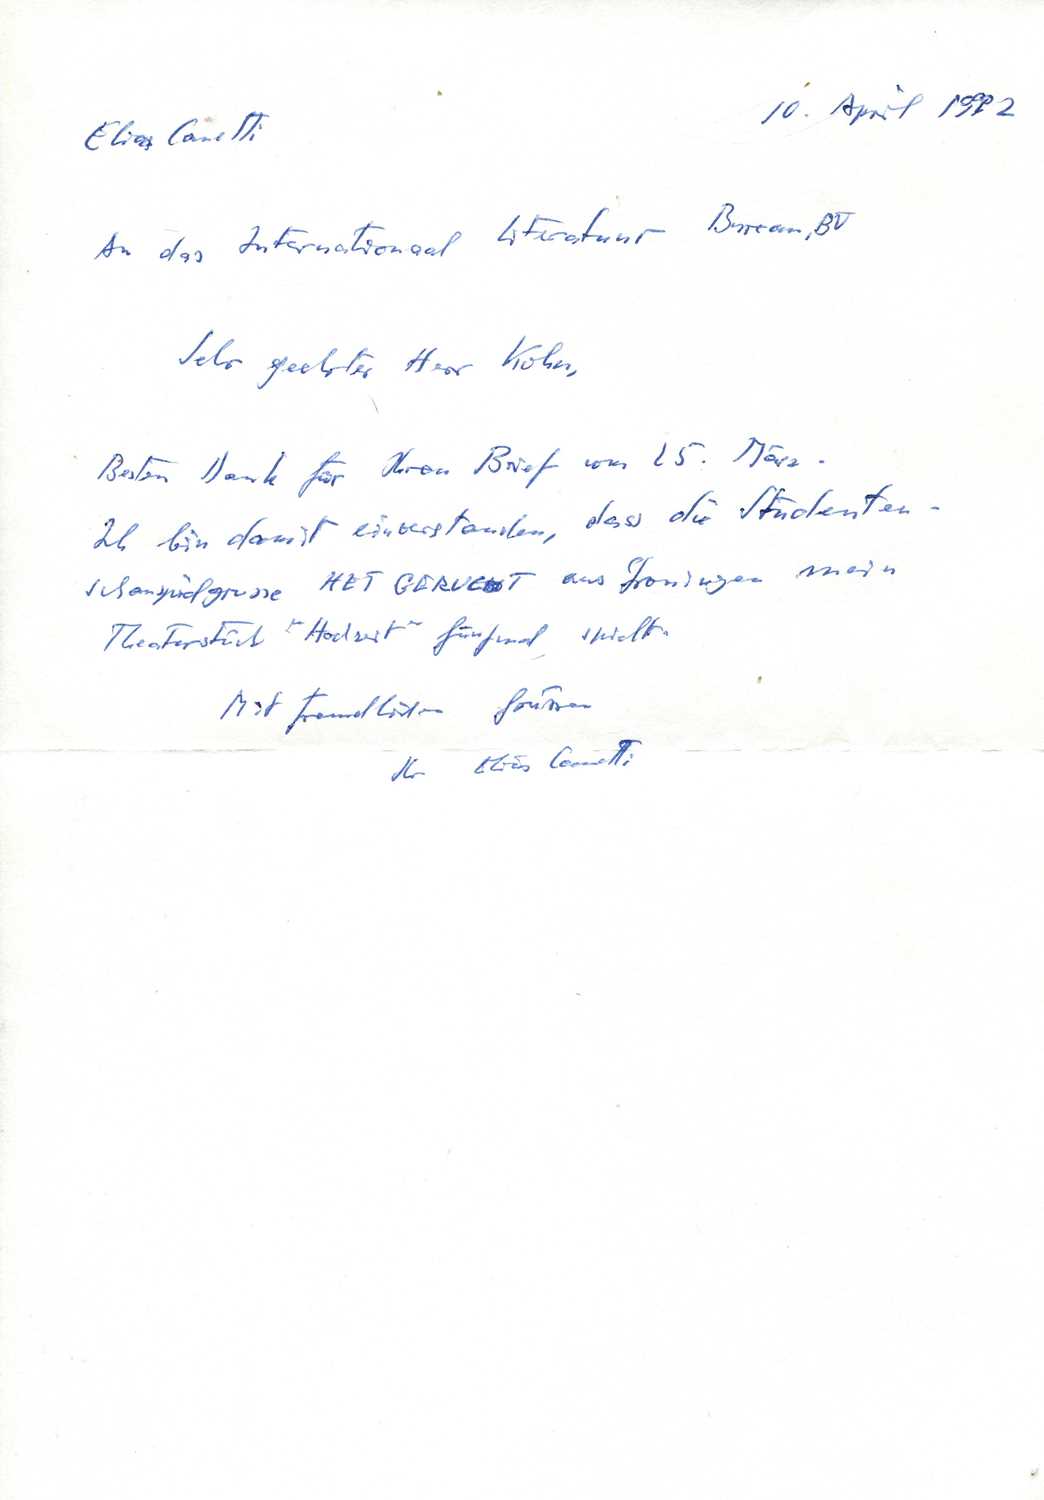 Elias Canetti
10. April 1992
An das Internationaal Literatuur Bureau, BV
Sehr geehrter Herr Kohn,
Besten Dank für Ihren Brief vom 25. März.
Ich bin damit einverstanden, dass die Studenten-
schauspielgruppe HET GERUCHT aus Groningen mein
Theaterstück "Hochzeit" fünfmal spielt.
Mit freundlichen Grüssen
Ihr Elias Canetti